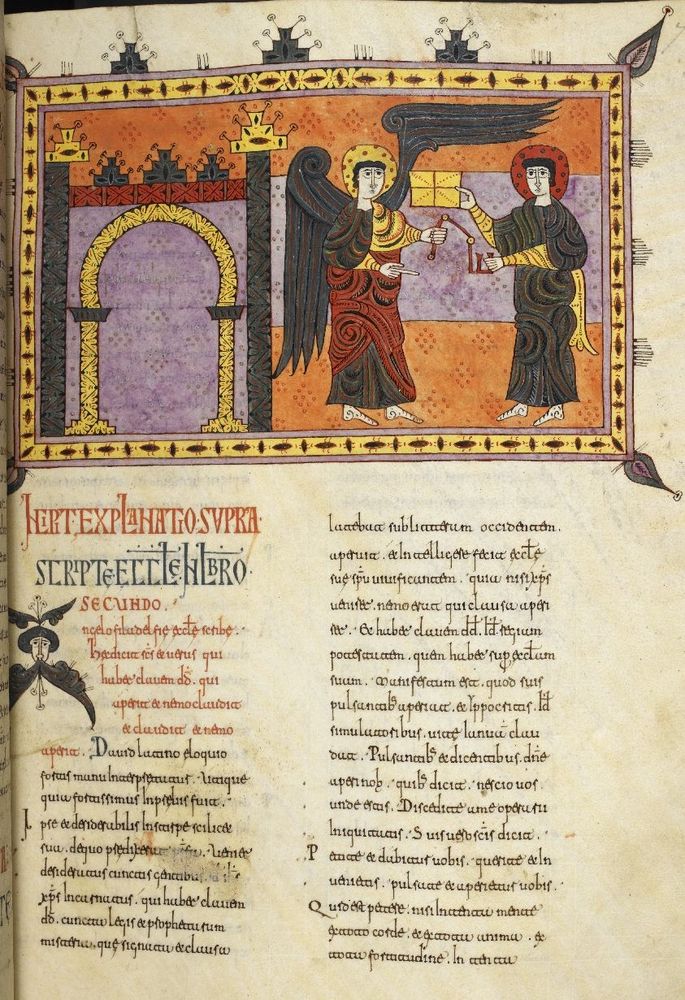 INCIPIT EXPLANATIO SUPRA
SCRIPTE ECLE IN LIBRO
SECUNDO.
Angelo filadelfie eccle scribe.
Hec dicit scs et uerus qui
habet clauem dd. qui
aperit et nemo claudit
et claudit et nemo
aperit. Dauid latino eloquio
fortis manu interpretatus. Utique
quia fortissimus in preliis fuit.
Ipse et desiderabilis in stirpe scilicet
sua. de quo predixerat Veniet
desideratus cunctis gentibus.
xps incarnatus. qui habet clauem
dd. cuncta legis et prophetarum
misteria. que signata et clausa
latebat sub litterarum occidentem.
aperuit. et intelligere fecit eccle
sue spu uiuificantem. quia nisi xps
uenisset. nemo erat qui clausa aperi
ret. Et habet clauem dd. Id regiam
potestatem. quam habet super ecclam
suam. Manifestum est. quod suis
pulsantib aperiat. et Ippocritis. Id
simulatoribus. uite ianua clau
dat. Pulsantib et dicentibus. dne
aperi nob. quib dicit. nescio uos
unde estis. Discedite a me operarii
Iniquitatis. Suis uero scis dicit.
Petite et dabitur uobis. querite et in
uenietis. pulsate et aperietur uobis.
Quid est petere. nisi Intenta mente
ex toto corde. et ex tota anima. ex
tota fortitudine. In tenta